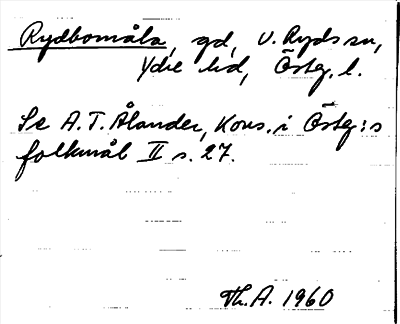 Rydbomåla, gd, V. Ryds sn,
Ydre hd, Östg. l.
Se A. T. Ålander, Kons. i Östg:s
folkmål II s. 27.
Th. A. 1960